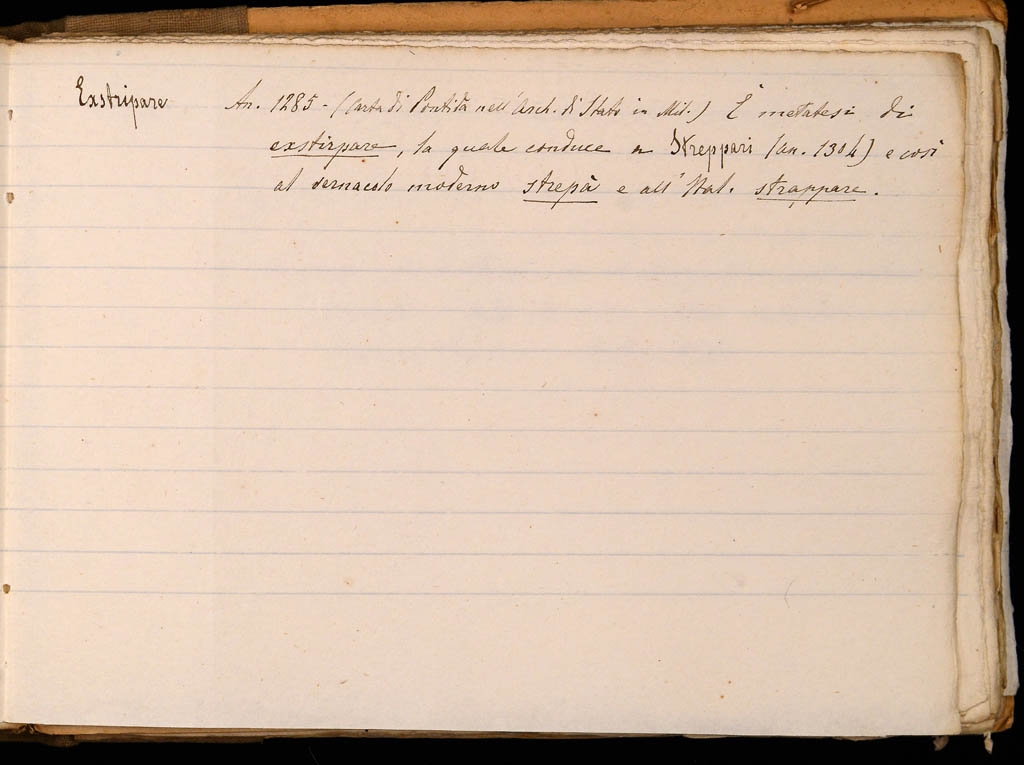 Exstripare An. 1285 - (Carta di Pontida nell'Arch. di Stato in Mil.) È metatesi di
exstirpare, la quale conduce a Streppari (an. 1304) e così
al vernacolo moderno strepà e all'Ital. strappare.